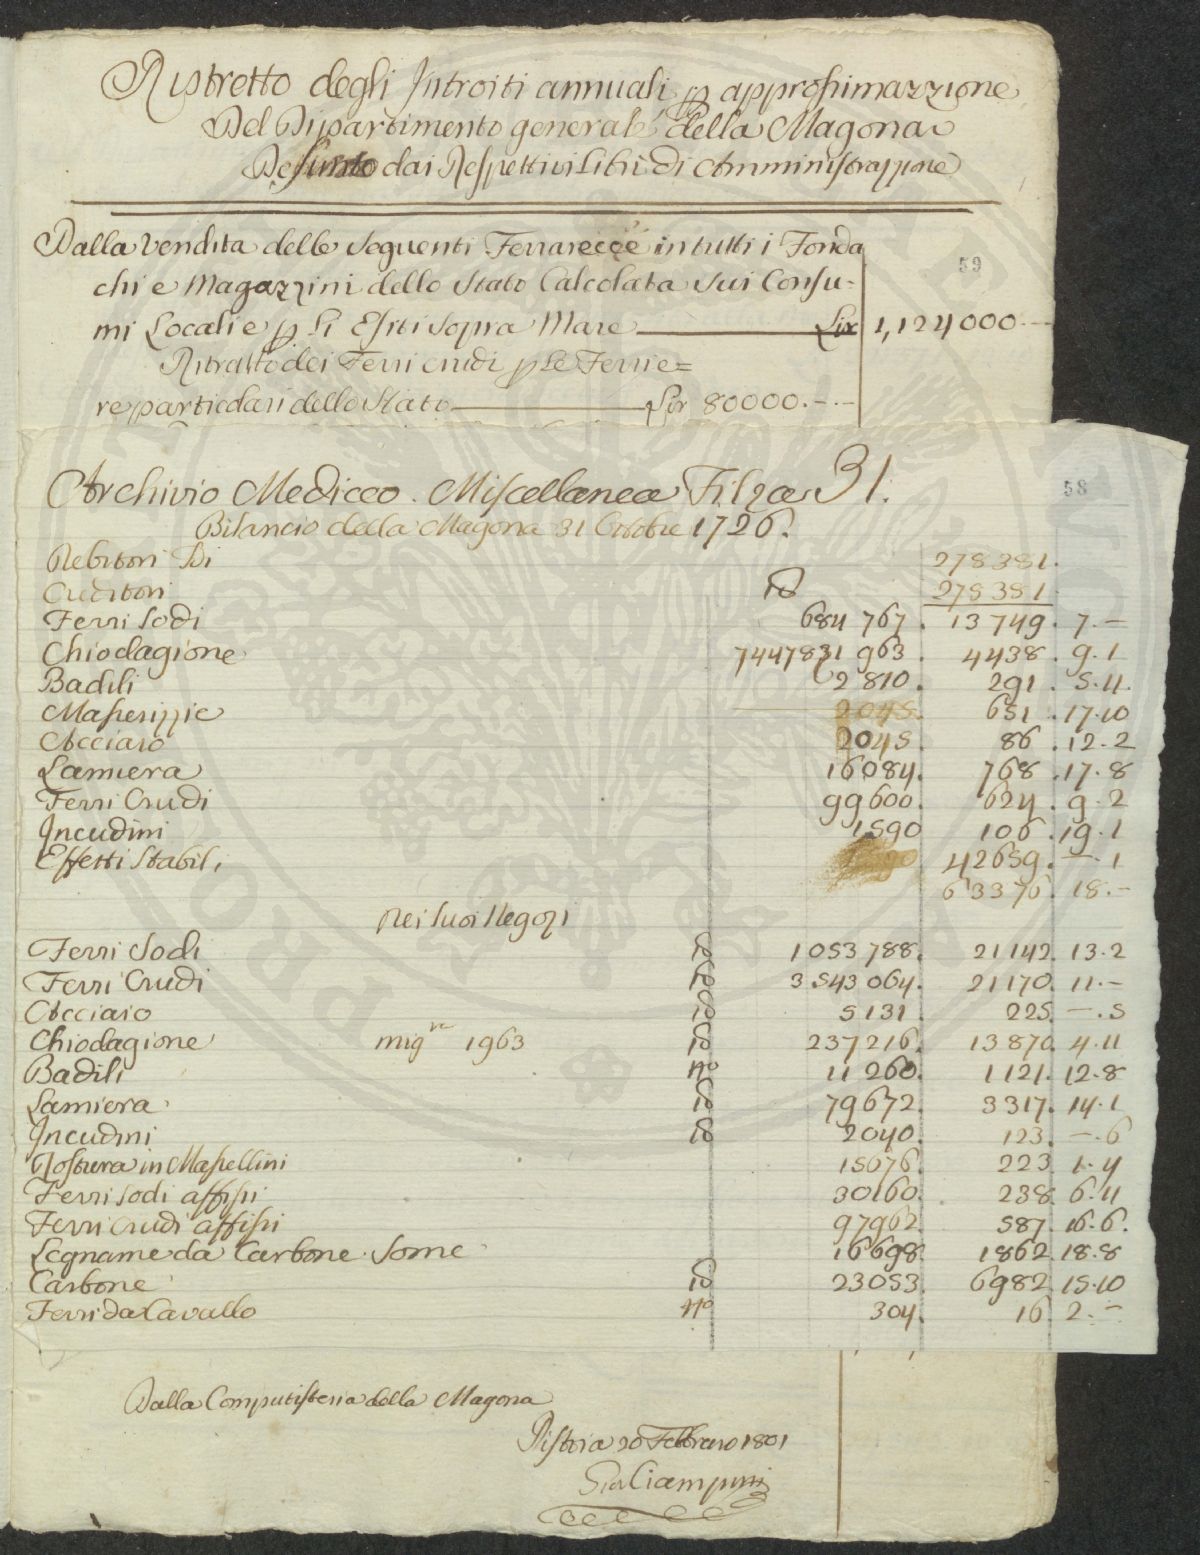 Ristretto degli Introiti annuali p approssimazzione
Del Dipartimento generale della Magona
Desunto dai Respettivi Libri di Amministrazione
Dalla Vendita delle Seguenti Ferrarecce in tutti i Fonda
59
chi e Magazzini dello Stato Calcolata Sui Consu-
mi Locali e p li Esiti Sopra Mare Lir 1,124000.—
Ritratto dei Ferri crudi p le Ferrie=
re particolari dello Stato Lir 80000.—.—
Archivio Mediceo. Miscellanea Filza 31.
58
Bilancio della Magona 31 Ottobre 1726.
Debitori Di 278381.
Creditori 278381
Ferri Sodi 684767. 13749. 7.—
Chiodagione 963. 4438. 9.1
Badili 2810. 291. 5.11.
Masserizzie 651. 17.10
Acciaio 2045. 86. 12.2
Lamiera 16084. 768. 17.8
Ferri Crudi 99600. 624. 9.2
Incudini 1590 106. 19.1
Effetti Stabili 42659. —.1
63376. 18.—
Nei Suoi Negozi
Ferri Sodi lb 1053788. 21142. 13.2
Ferri Crudi lb 3543064. 21170. 11.—
Acciaio lb 5131. 225. —.5
Chiodagione mig.re 1963 lb 237216. 13870. 4.11
Badili No 11260. 1121. 12.8
Lamiera lb 79672. 3317. 14.1
Incudini lb 2040. 123. —.6
Rostura in Massellini 15676. 223. 1.4
Ferri Sodi affissi 30160. 238. 6.11
Ferri Crudi affissi 97962. 587. 16.6.
Legname da Carbone Some 16698. 1862. 18.8
Carbone lb 23053. 6982. 15.10
Ferri da Cavallo No 304. 16. 2.—
Dalla Computisteria della Magona
Pistoia 20 Febbraio 1801
Ciampini